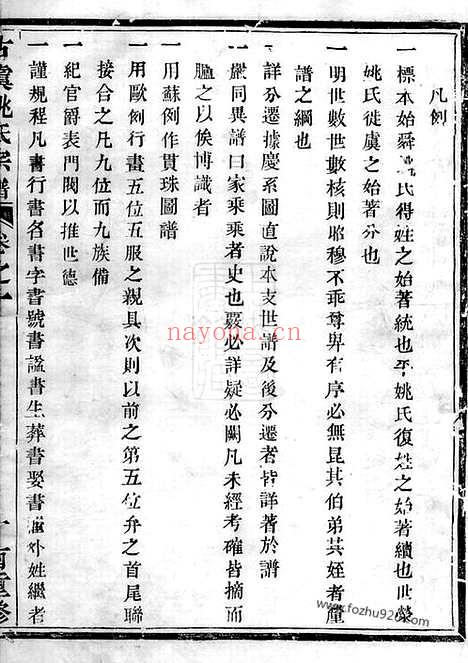 凡例
一標本始舜姚氏得姓之始著統也平姚氏復姓之始著續也世榮
姚氏徙虞之始著分也
一明世數世數核則昭穆不乖尊卑有序必無昆其伯弟其姪者釐
譜之綱也
一詳分遷據慶系圖直說本支世譜及後分遷者皆詳著於譜
一嚴同異譜曰家乘乘者史也覈必詳疑必闕凡未經考確皆摘而
臚之以俟博識者
一用蘇例作貫珠圖譜
一用歐例行畫五位五服之親具次則以前之第五位弁之首尾聯
接合之凡九位而九族備
一紀官爵表門閥以推世德
一謹規程凡書行書名書字書號書諡書生葬書娶書外姓繼者
古虞姚氏宗譜
卷之一
重修
nayona.cn
www.fozhu920.com